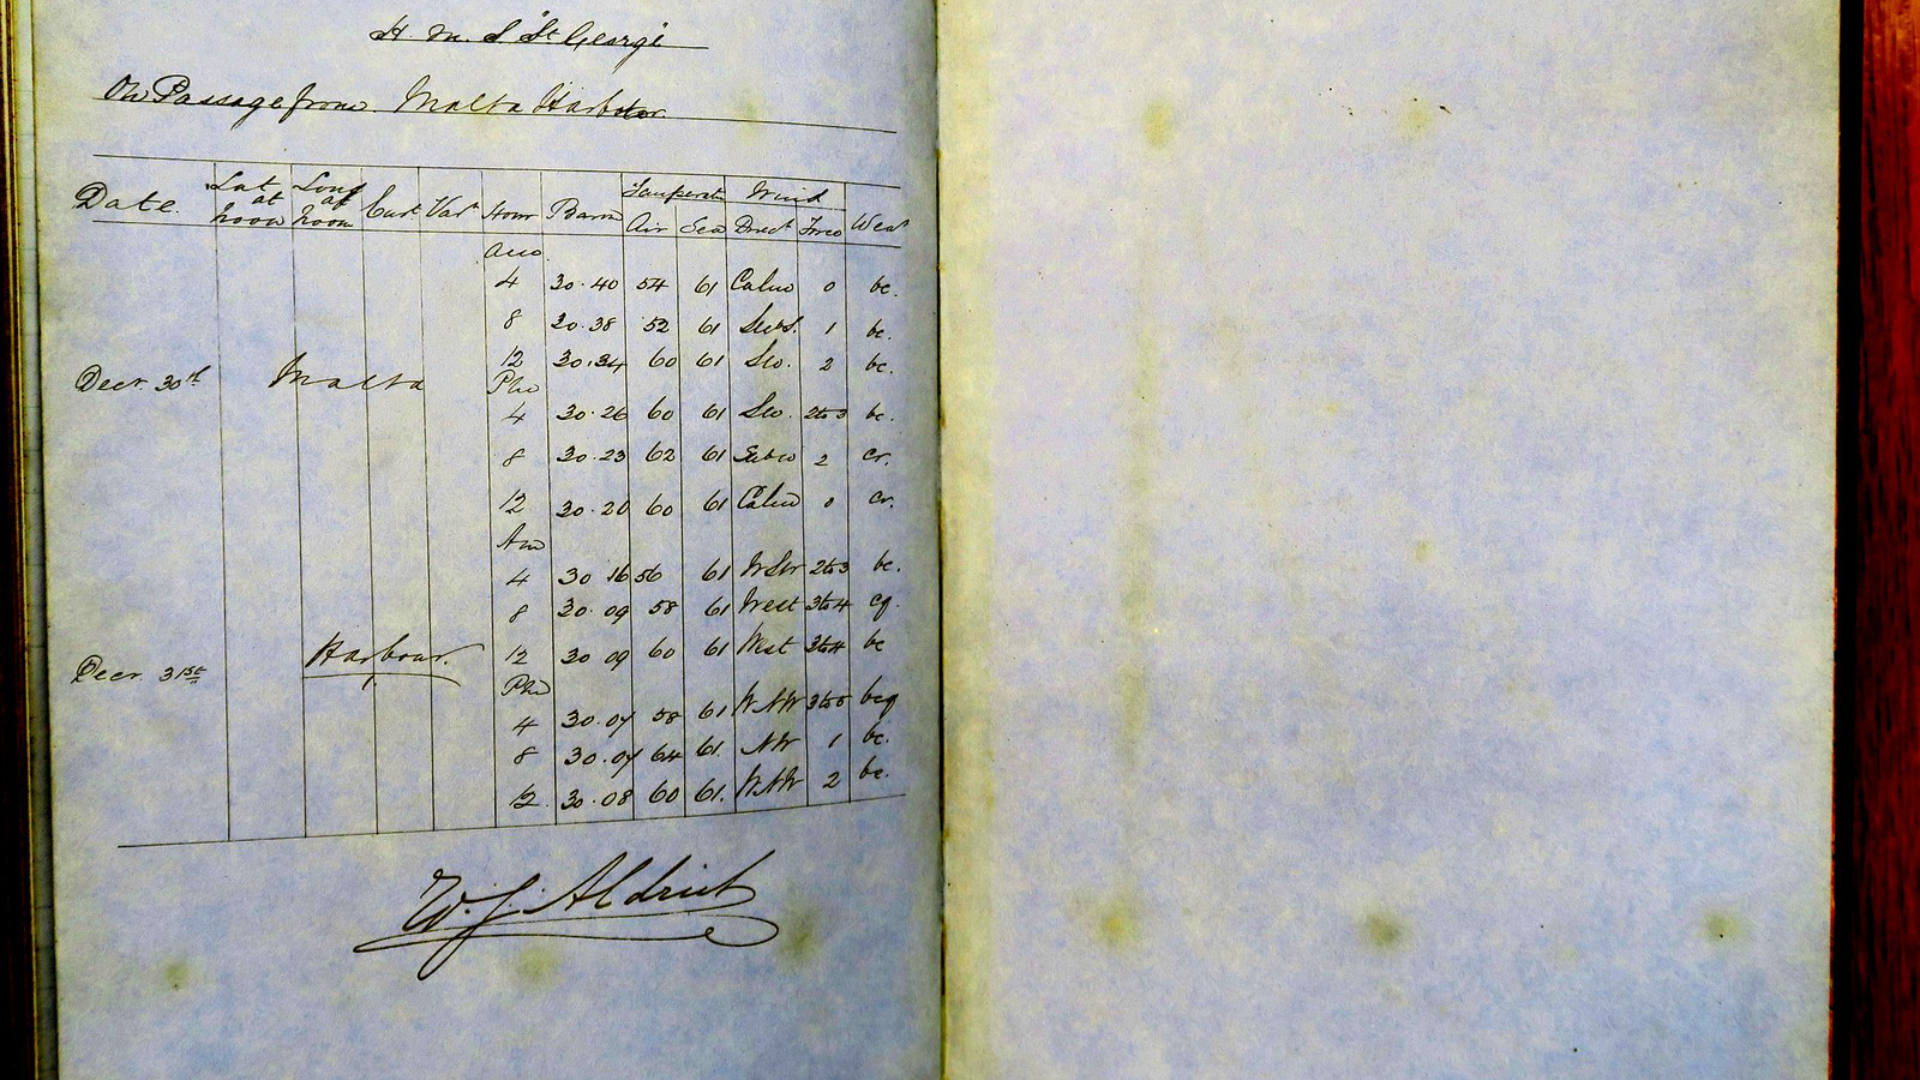 H. M. S. "St George"
On Passage from Malta Harbour
Date. Lat at noon Long at noon Curt Vart Hour Barm Temperatr Air Sea Wind Direct Force Wear
Am
4 30.40 54 61 Calm 0 bc.
8 30.38 52 61 1 bc.
12 30.34 60 61 SW. 2 bc.
Decr. 30th Malta Pm
4 30.26 60 61 SW. 2to3 bc.
8 30.23 62 61 2 cr.
12 30.20 60 61 Calm 0 cr.
Am
4 30 16 56 61 WSW 2to3 bc.
8 30.09 58 61 West 3to4 cq.
Decr. 31st Harbour. 12 30 09 60 61 West 3to4 bc
Pm
4 30.07 58 61 WNW 3to5 bcq
8 30.07 64 61. NW 1 bc.
12. 30.08 60 61. WNW 2 bc.
W. J. Aldrich